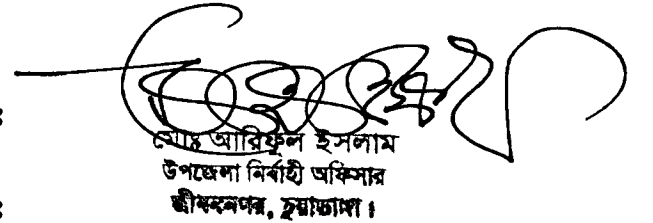 মোঃ আরিফুল ইসলাম
উপজেলা নির্বাহী অফিসার
জীবননগর, চুয়াডাঙ্গা।